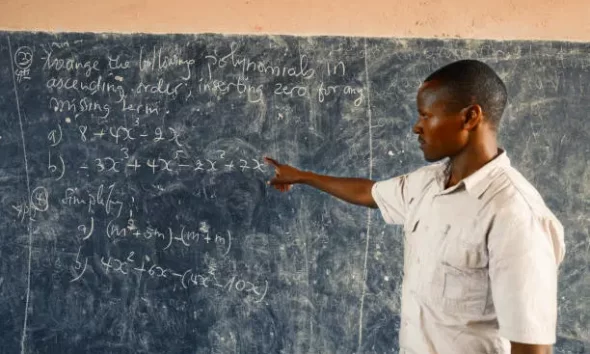 ② Arrange the following polynomials in
ascending order, inserting zero for any
missing term.
a) 8 + 4x³ - 2x
b) - 3x³ + 4x⁵ - 2x² + 2x
Simplify:
a) (m² + 5m) - (m² + m)
b) 4x² + 6x - (4x² - 10x)